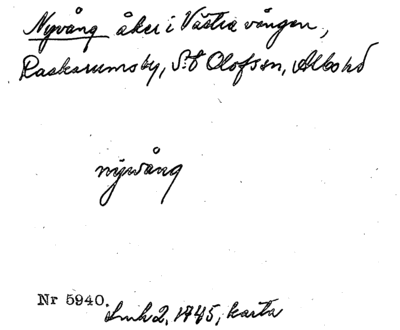 Nyvång åker i Västra vången,
Raskarumsby, S:t Olofs sn, Albo hd
nyvång
Nr 5940.
Lmk 2, 1745, karta